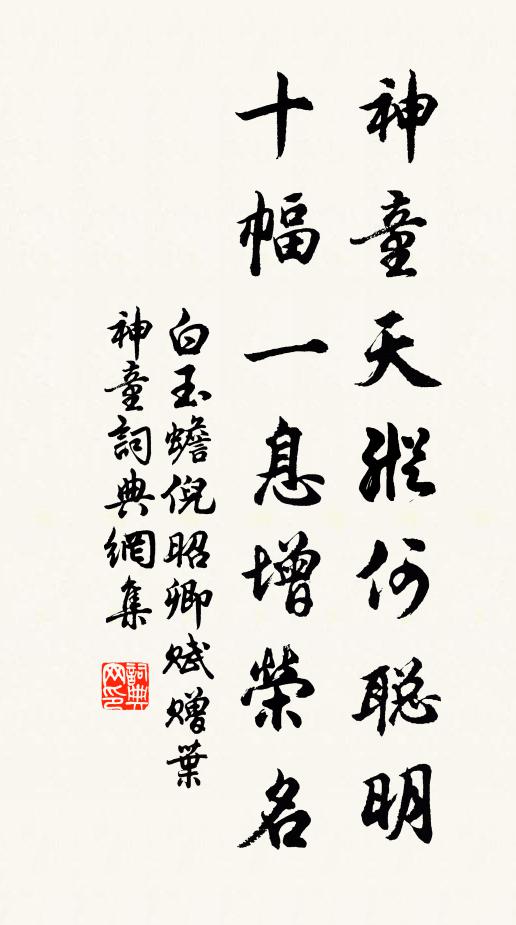 神童天縱何聰明
十幅一息增榮名
白玉蟾倪昭卿賦贈葉
神童詞典網集
詞典网印